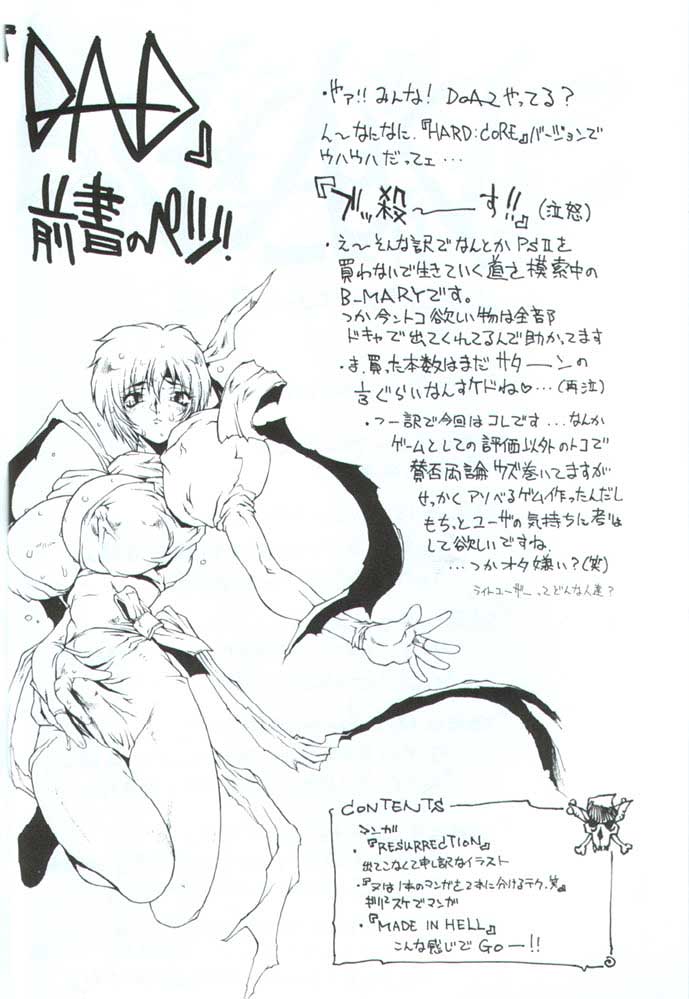 DAD』
前書のページ!
・やァ!!みんな! DOA2やってる?
ん〜なになに、『HARD:CORE』バージョンで
ウハウハだってェ…
『ブッ殺〜〜す!!』(泣怒)
・え〜そんな訳でなんとかPSⅡを
買わないで生きていく道を模索中の
B_MARYです。
つか今ントコ欲しい物は全部
ドキャで出てくれてるんで助かてます
・ま、買った本数はまだサターンの
ぐらいなんすケドね♡…(再泣)
・つー訳で今回はコレです...なんか
ゲームとしての評価以外のトコで
賛否両論ウズ巻いてますが
せっかくアソべるゲム作ったんだし
もちっとユーザの気持ちに考慮
して欲しいですね
…つかオタ嫌い?(笑)
ライトユーザーってどんな人達?
CONTENTS
マンガ
・『RESURRECTION』
出てこなくて申し訳なイラスト
・『又は1本のマンガを2本に分けるテク.笑』
ギリスケでマンガ
・『MADE IN HELL』
こんな感じでGO—!!